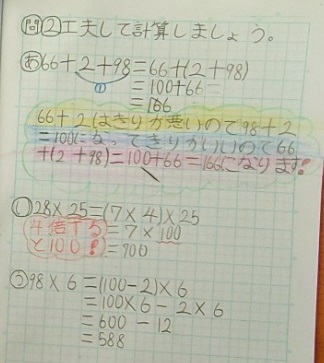 問②工夫して計算しましょう。
あ66+2+98=66+(2+98)
①
=100+66=
=166
66+2はきりが悪いので98+2
=100になってきりがいいので66
+(2+98)=100+66=166になります!
①28×25=(7×4)×25
4倍する
と100!
=7×100
=700
②98×6=(100-2)×6
=100×6-2×6
=600-12
=588